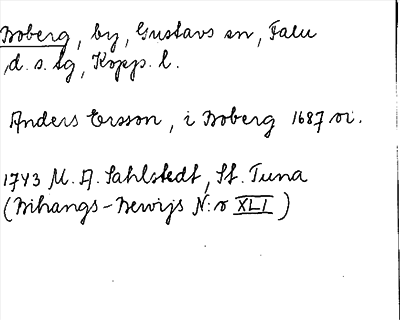 Boberg, by, Gustavs sn, Falu
d. s. lg, Kopp. l.
Anders Ersson, i Boberg 1687 vi.
1743 M. A. Sahlstedt, St. Tuna
(Bihangs-Bewijs N:o XLI)